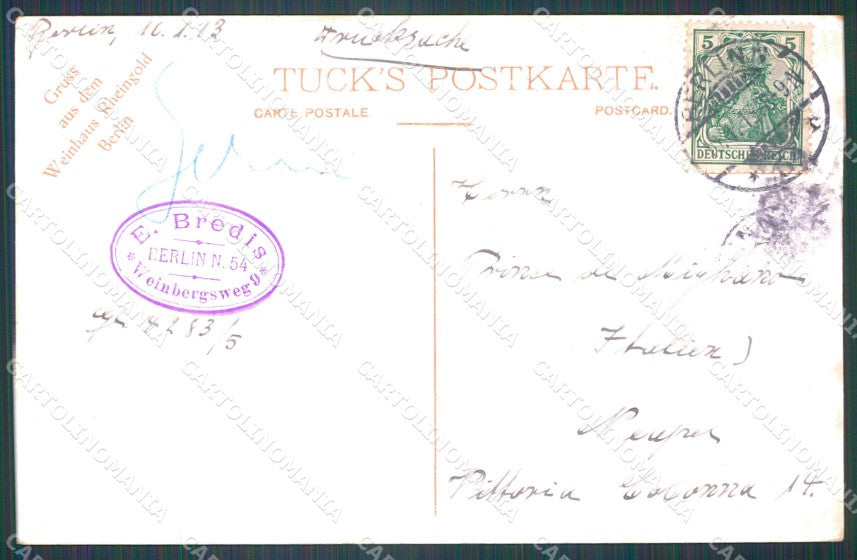 Berlin, 16.1.13
Drucksache
Gruss
aus dem
Weinhaus Rheingold
Berlin
TUCK'S POSTKARTE.
CARTE POSTALE.
POSTCARD.
5 5
DEUTSCHES REICH
BERLIN N
E. Bredis
BERLIN N. 54
* Weinbergsweg 9 *
Herrn
Prince de
Italien)
Neapel
Vittoria Colonna 14.
CARTOLINOMANIA